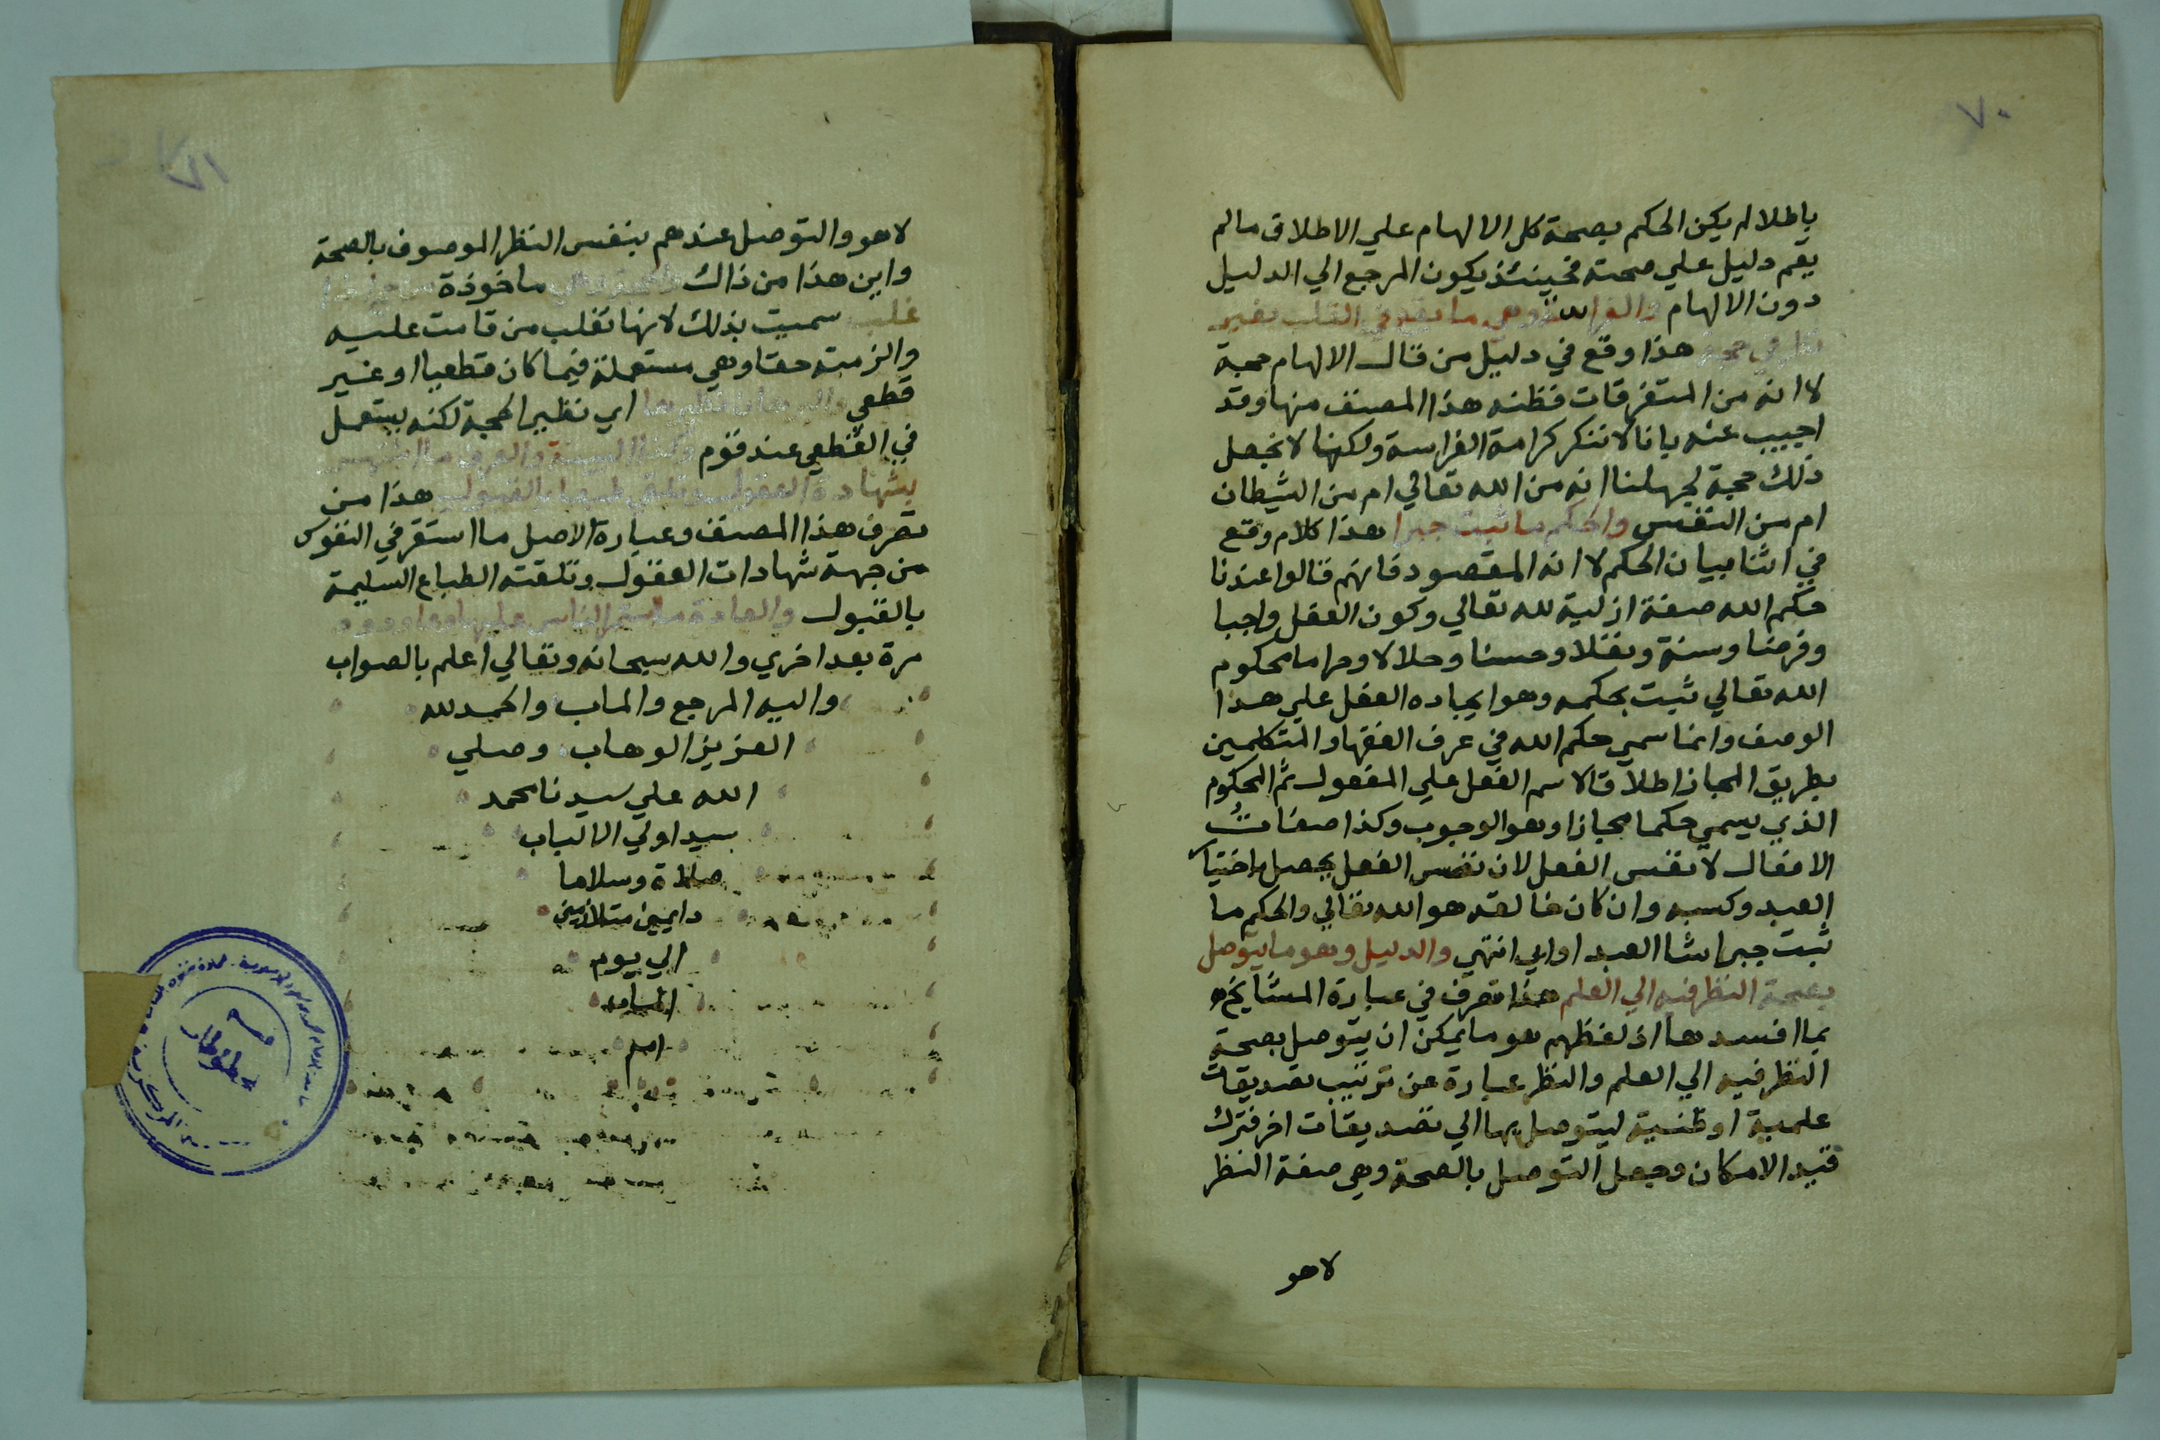 ٧٠
باطلا لم يكن الحكم بصحة كل الالهام علي الاطلاق مالم
يقم دليل علي صحته فحينئذ يكون المرجع الي الدليل
دون الالهام والفراسة وهي ما يقع في القلب بغير
نظر في حجة هذا وقع في دليل من قال الالهام حجة
لا انه من المتفرقات فظنه هذا المصنف منها وقد
اجيب عنه بانا لا ننكر كرامة الفراسة ولكنها لا نجعل
ذلك حجة لجهلنا انه من الله تعالي ام من الشيطان
ام من النفس والحكم ما ثبت جبرا هذا كلام وقع
في اثنا بيان الحكم لا انه المقصود فانهم قالوا عندنا
حكم الله صفة ازلية لله تعالي وكون الفعل واجبا
وفرضا وسنة ونفلا وحسنا وحلالا وحراما محكوم
الله تعالي ثبت بحكمه وهو ايجاده الفعل علي هذا
الوصف وانما سمي حكم الله في عرف الفقها والمتكلمين
بطريق المجاز اطلاقا لاسم الفعل علي المفعول ثم المحكوم
الذي يسمي حكما مجازا وهو الوجوب وكذا صفات
الافعال لا نفس الفعل لان نفس الفعل يحصل باختيار
العبد وكسبه وان كان خالقه هو الله تعالي والحكم ما
ثبت جبرا شا العبد او ابي انتهي والدليل وهو ما يتوصل
بصحة النظر فيه الي العلم هذا تصرف في عبارة المشايخ
بما افسدها اذ لفظهم هو ما يمكن ان يتوصل بصحة
النظر فيه الي العلم والنظر عبارة عن ترتيب تصديقات
علمية او ظنية ليتوصل بها الي تصديقات اخر فترك
قيد الامكان وجعل التوصل بالصحة وهي صفة النظر
لاهو
٧١
لاهو والتوصل عندهم بنفس النظر الموصوف بالصحة
واين هذا من ذاك والحجة وهي ماخوذة
غلب سميت بذلك لانها تغلب من قامت عليه
والزمته حقا وهي مستعملة فيما كان قطعيا او غير
قطعي والبرهان نظيرها اي نظير الحجة لكنه يستعمل
في القطعي عند قوم وكذا البينة والعرف ما استقر
بشهادة العقول وتلقي طباع القبول هذا من
تصرف هذا المصنف وعبارة الاصل ما استقر في النفوس
من جهة شهادات العقول وتلقته الطباع السليمة
بالقبول والعادة ما استمر الناس عليها وعاودوه
مرة بعد اخري والله سبحانه وتعالي اعلم بالصواب
واليه المرجع والماب والحمد لله
العزيز الوهاب وصلي
الله علي سيدنا محمد
سيد اولي الالباب
صلاة وسلاما
دايمين متلازمين
الي يوم
قسم
مخطوطات